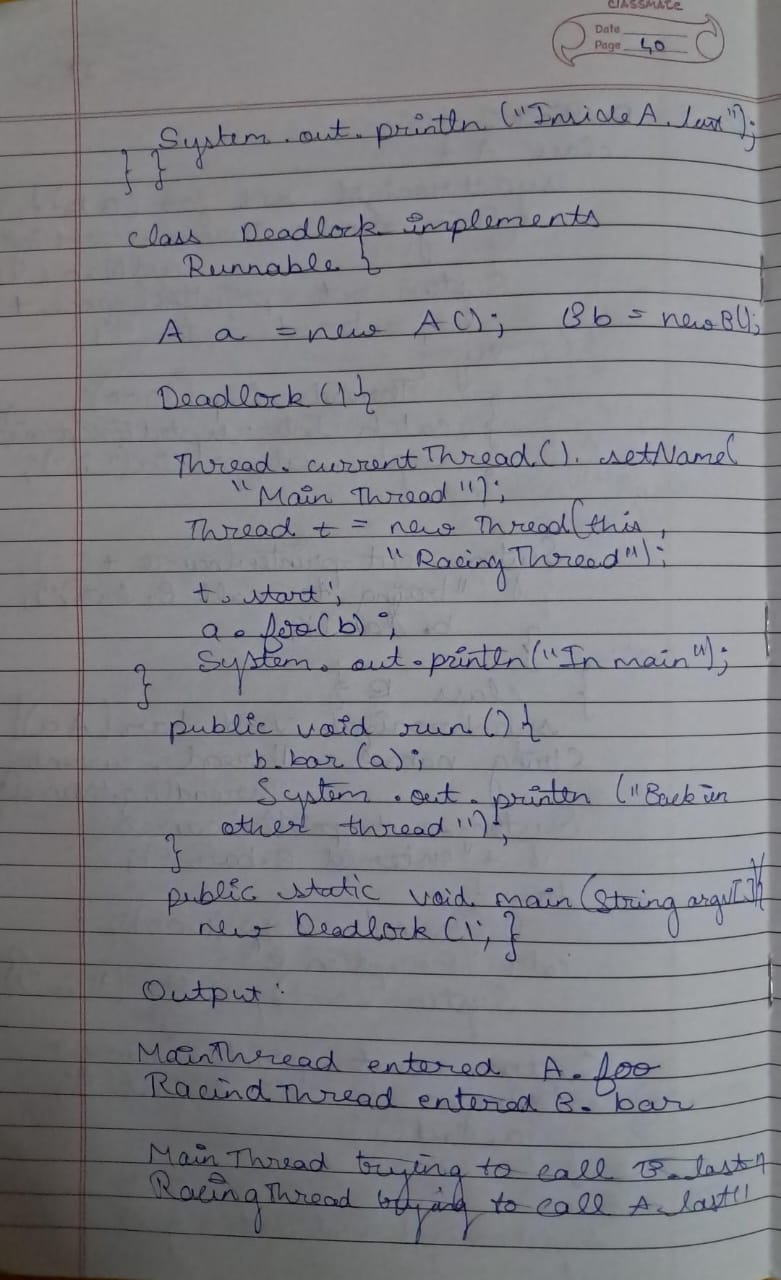 classmate
Date
Page 40
System.out.println ("Inside A.last");
} }
class Deadlock implements
Runnable {
A a = new A(); B b = new B();
Deadlock () {
Thread.currentThread().setName(
"Main Thread");
Thread t = new Thread(this,
"Racing Thread");
t.start;
a.foo(b);
System.out.println("In main");
}
public void run () {
b.bar(a);
System.out.println ("Back in
other thread");
}
public static void main(String args[]){
new Deadlock (); }
Output:
MainThread entered A.foo
Racind Thread entered B.bar
Main Thread trying to call B.last()
Racing Thread trying to call A.last()